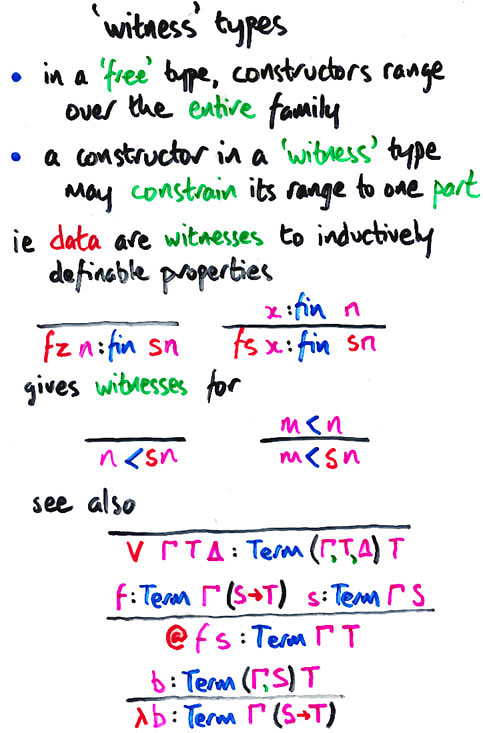 'witness' types
• in a 'free' type, constructors range
over the entire family
• a constructor in a 'witness' type
may constrain its range to one part
ie data are witnesses to inductively
definable properties
x : fin n
fz n : fin sn fs x : fin sn
gives witnesses for
m < n
n < sn m < sn
see also
V Γ T Δ : Term (Γ,T,Δ) T
f : Term Γ (S→T) s : Term Γ S
@ f s : Term Γ T
b : Term (Γ,S) T
λ b : Term Γ (S→T)